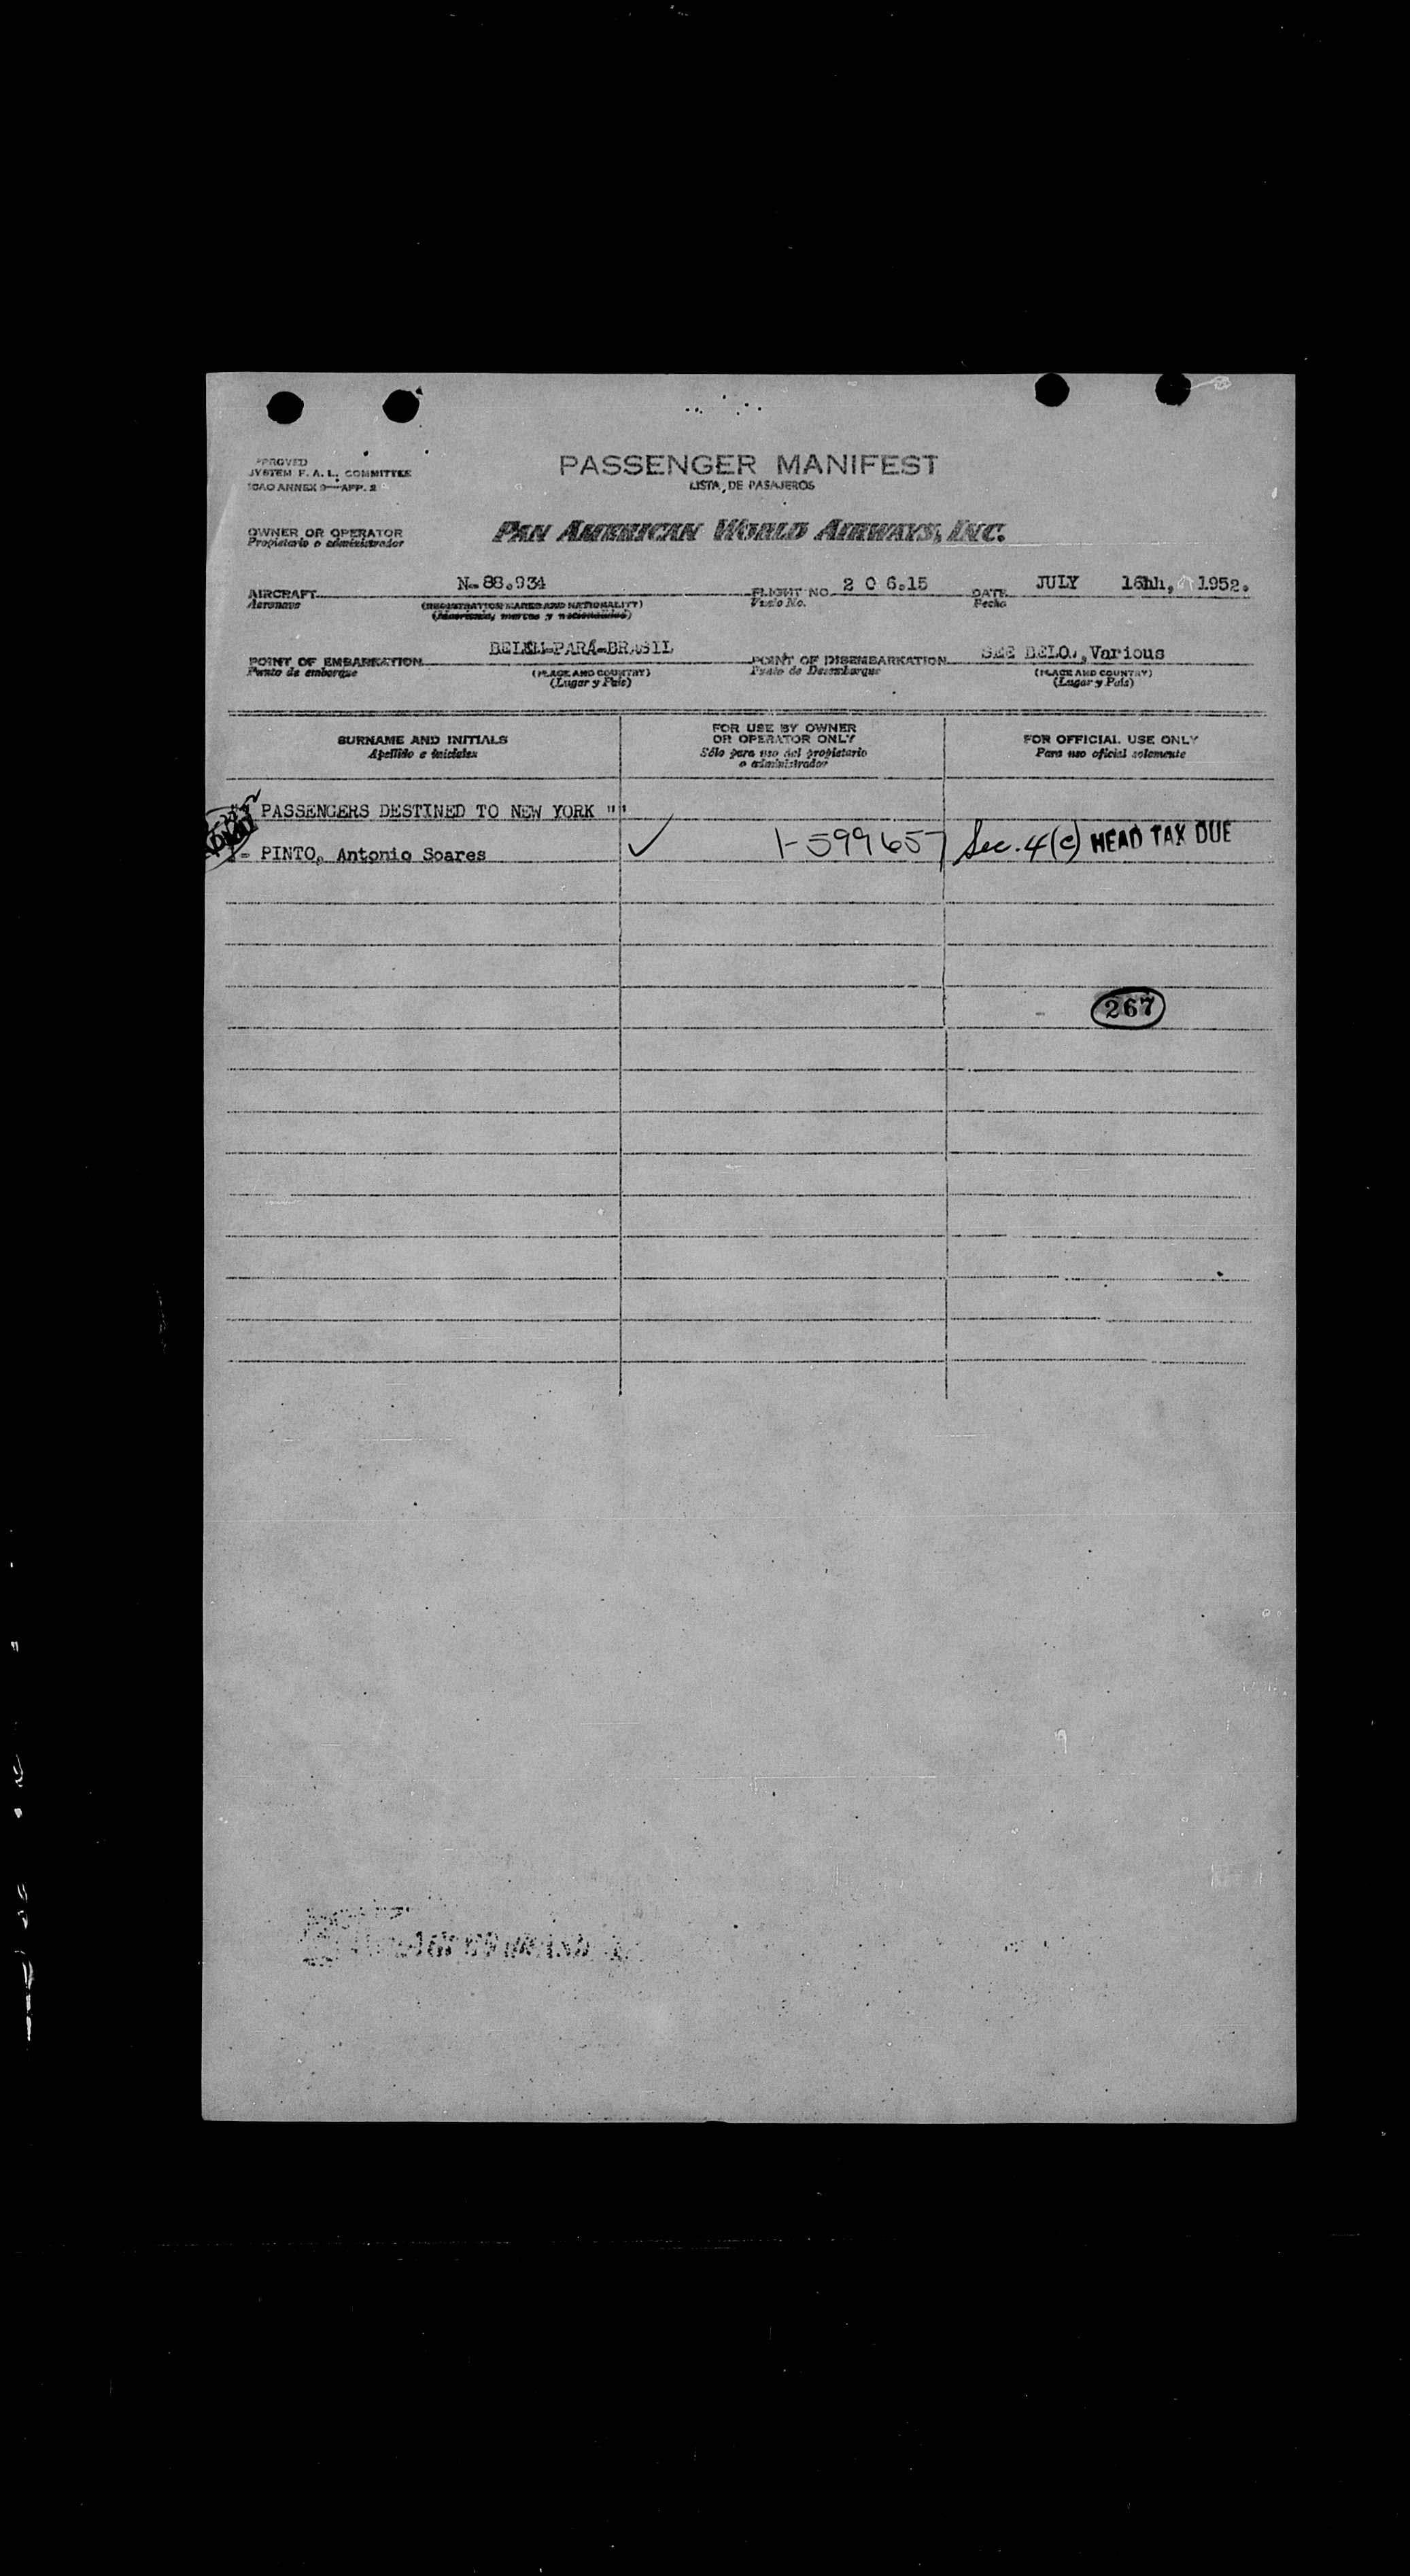 PASSENGER MANIFEST
LISTA DE PASAJEROS
SYSTEM F. A. L. COMMITTEE
ICAO ANNEX 9—APP. 2
OWNER OR OPERATOR
Propietario o administrador
PAN AMERICAN WORLD AIRWAYS, INC.
AIRCRAFT N-88.934 FLIGHT NO. 2 0 6.15 DATE JULY 16hh, 1952.
Aeronave (REGISTRATION MARKS AND NATIONALITY) Vuelo No. Fecha
(Matrícula, marcas y nacionalidad)
POINT OF EMBARKATION BELÉM-PARÁ-BRASIL POINT OF DISEMBARKATION SEE BELO., Various
Punto de embarque (PLACE AND COUNTRY) Punto de Desembarque (PLACE AND COUNTRY)
(Lugar y País) (Lugar y País)
SURNAME AND INITIALS FOR USE BY OWNER OR OPERATOR ONLY FOR OFFICIAL USE ONLY
Apellido e iniciales Sólo para uso del propietario o administrador Para uso oficial solemente
PASSENGERS DESTINED TO NEW YORK ""
1- PINTO, Antonio Soares ✓ 1-599657 Sec. 4(c) HEAD TAX DUE
267